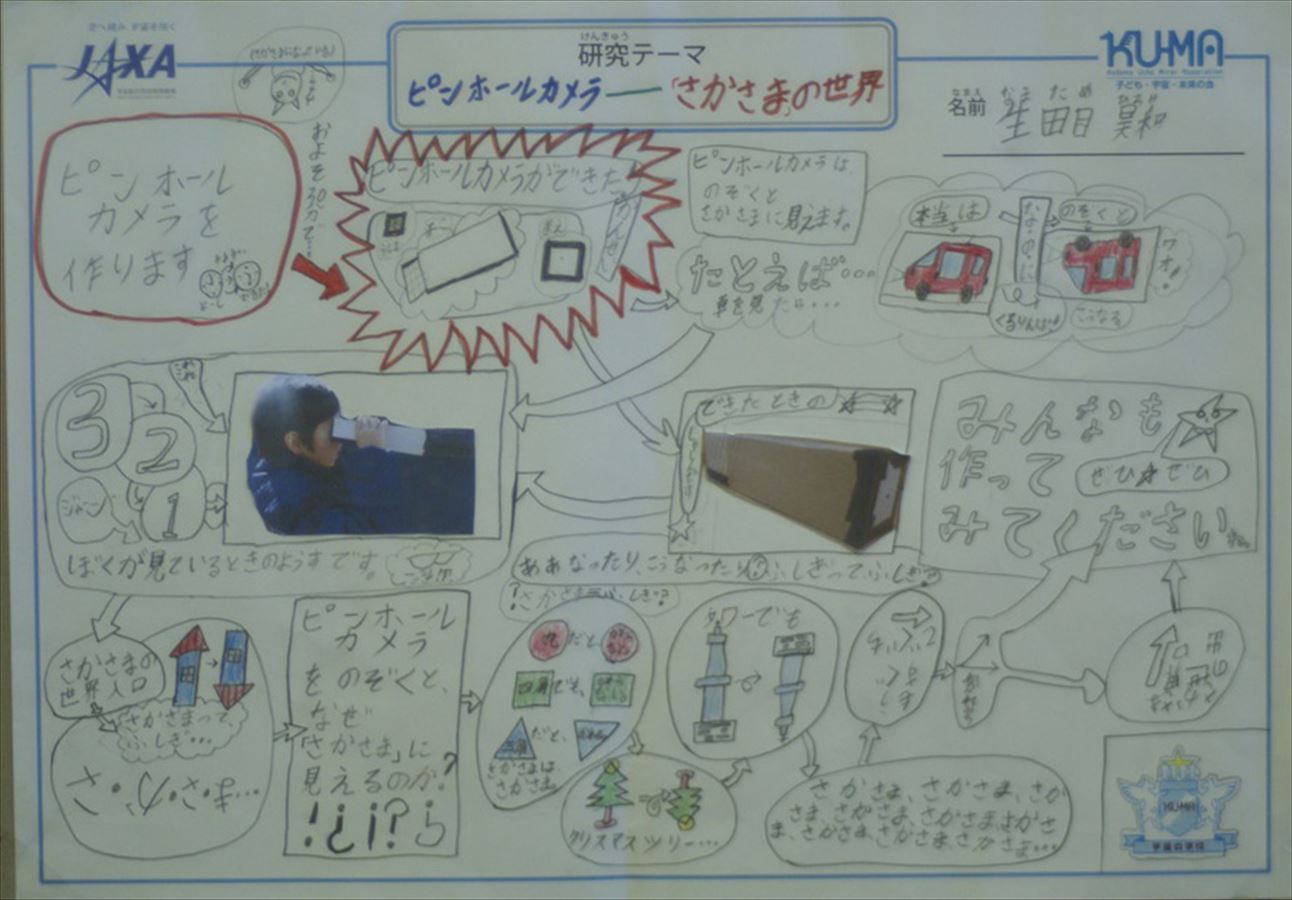 JAXA
けんきゅう
研究テーマ
ピンホールカメラ―「さかさま」の世界
KU-MA
子ども・宇宙・未来の会
なまえ
名前
ピンホール
カメラを
作ります
ピンホールカメラができた
ピンホールカメラは、
のぞくと
さかさまに見えます。
たとえば…
車を見たら…
本当は
なぜ
のぞくと
ワオ!
こうなる
3
2
1
ジャーン
ぼくが見ているときのようすです。
できたときの
みんなも
作って
ぜひ★ぜひ
みてください
ああなったり、こうなったりふしぎってふしぎ?
さかさまの
世界入口
さかさまって、
ふしぎ…
さ・か・さ・ま…
ピンホール
カメラ
をのぞくと、
なぜ
「さかさま」に
見えるのか?
丸だと、
四角でも、
三角だと、
さかさまは
さかさま。
タワーでも
クリスマスツリー…
さかさま、さかさま、さか
さま、さかさま、さかさまさかさ
ま、さかさま、さかさま、さかさま…
KUMA
宇宙の学校